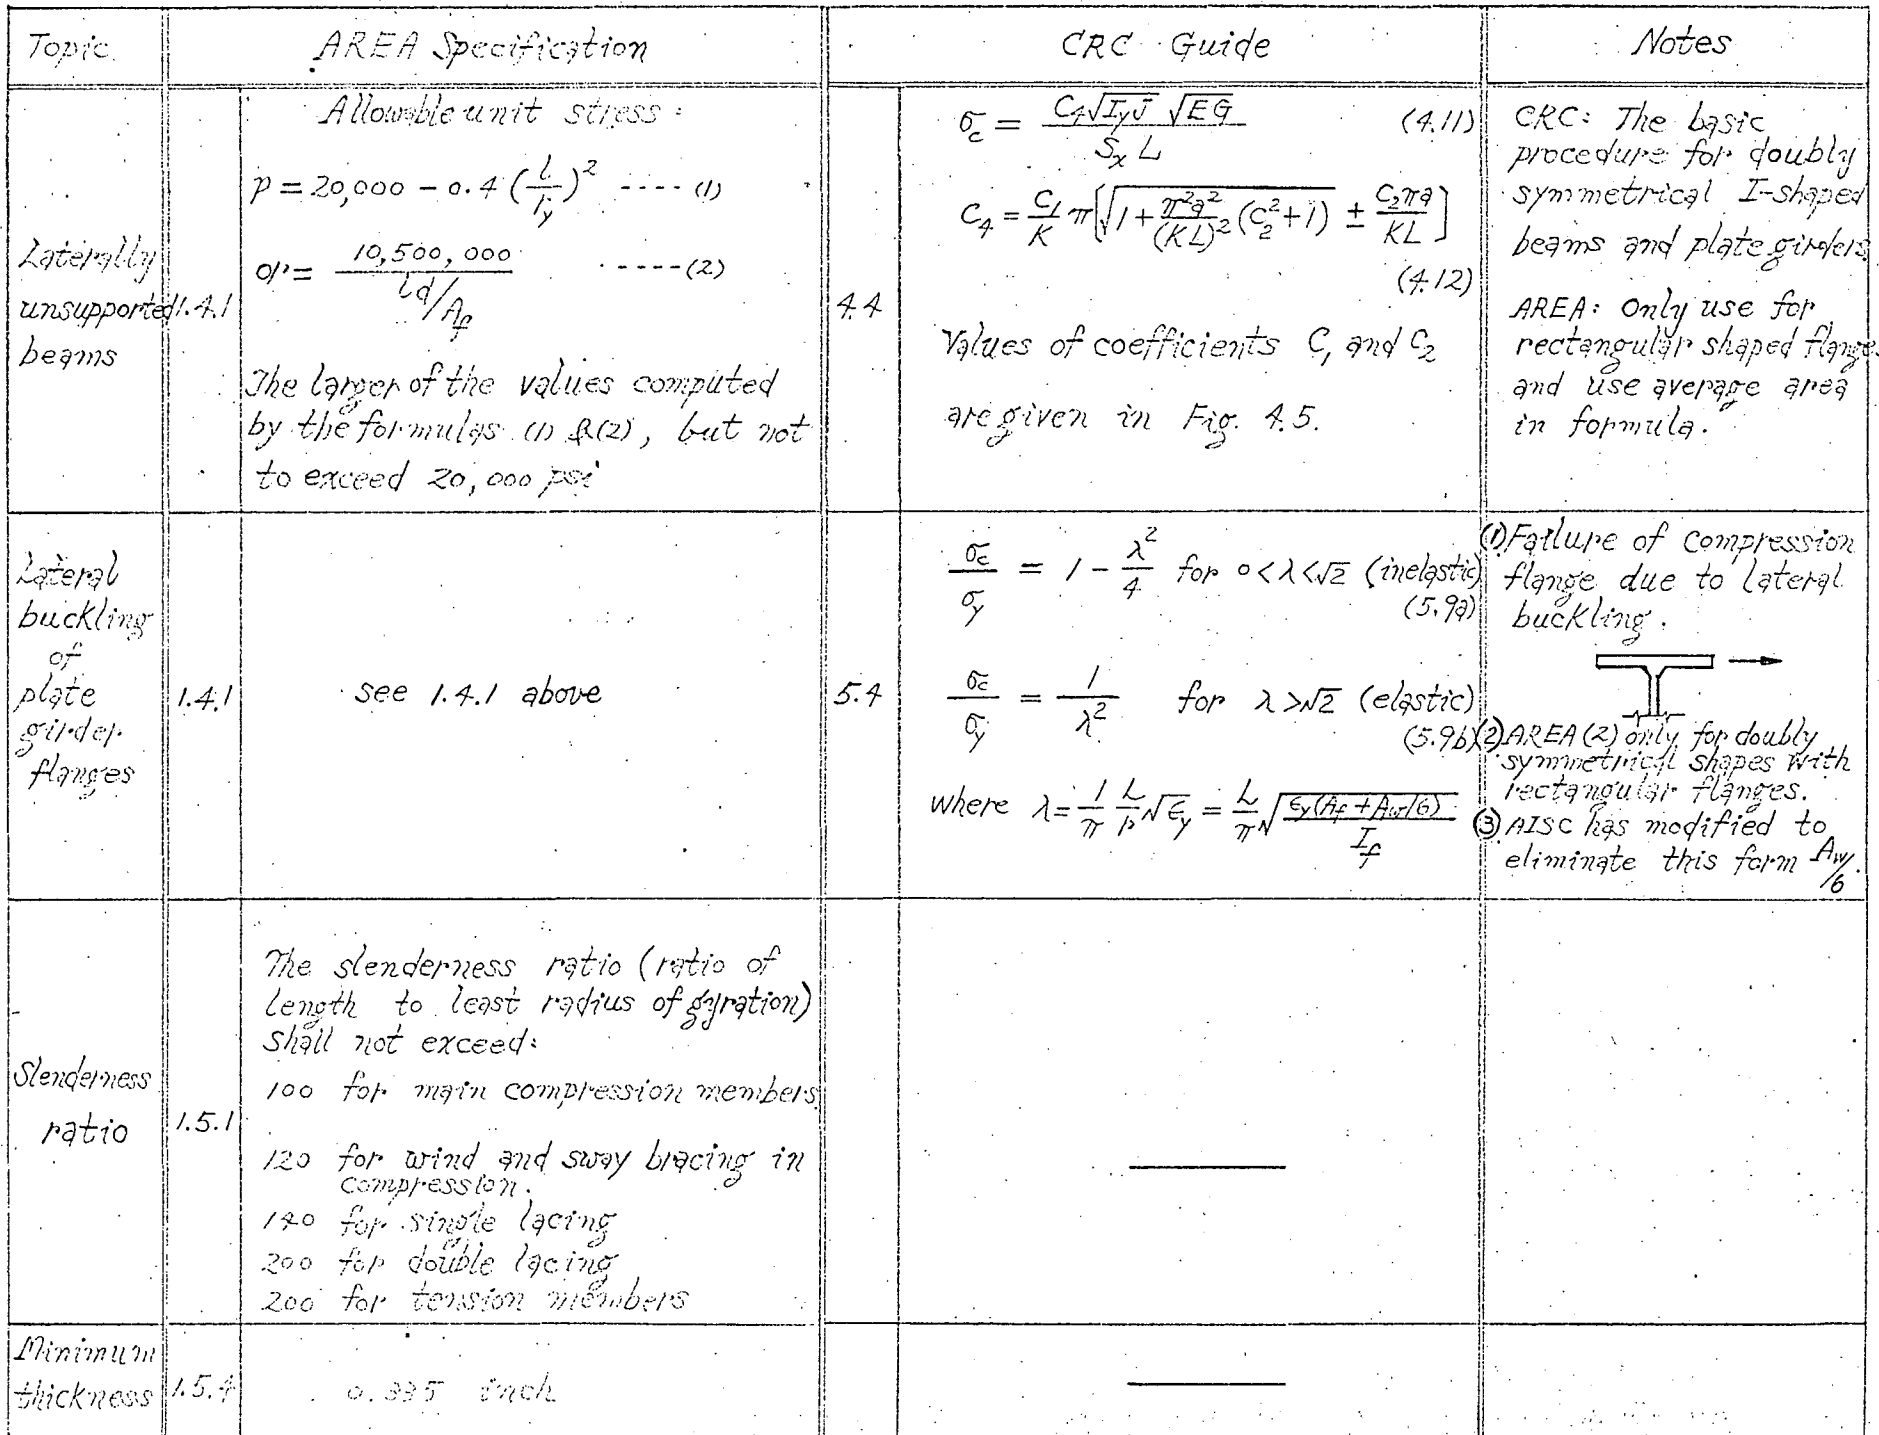 Topic
AREA Specification
CRC Guide
Notes
Laterally
unsupported
beams
1.4.1
Allowable unit stress:
p = 20,000 - 0.4 (l/r_y)^2 ---- (1)
or = 10,500,000 / (ld/A_f) ----(2)
The larger of the values computed
by the formulas (1) &(2), but not
to exceed 20,000 psi
4.4
σ_c = C_4√(I_y J) √(EG) / (S_x L) (4.11)
C_4 = C_1/K π[√(1 + π²a²/(KL)² (C_2² + 1)) ± C_2πa/KL]
(4.12)
Values of coefficients C_1 and C_2
are given in Fig. 4.5.
CRC: The basic
procedure for doubly
symmetrical I-shaped
beams and plate girders
AREA: Only use for
rectangular shaped flange
and use average area
in formula.
Lateral
buckling
of
plate
girder
flanges
1.4.1
see 1.4.1 above
5.4
σ_c/σ_y = 1 - λ²/4 for 0<λ<√2 (inelastic)
(5.9a)
σ_c/σ_y = 1/λ² for λ>√2 (elastic)
(5.9b)
where λ = 1/π L/r √ε_y = L/π √(ε_y(A_f + A_w/6) / I_f)
(1) Failure of compression
flange due to lateral
buckling.
(2) AREA (2) only for doubly
symmetrical shapes with
rectangular flanges.
(3) AISC has modified to
eliminate this form A_w/6.
Slenderness
ratio
1.5.1
The slenderness ratio (ratio of
length to least radius of gyration)
shall not exceed:
100 for main compression members
120 for wind and sway bracing in
compression.
140 for single lacing
200 for double lacing
200 for tension members
Minimum
thickness
1.5.4
0.335 inch